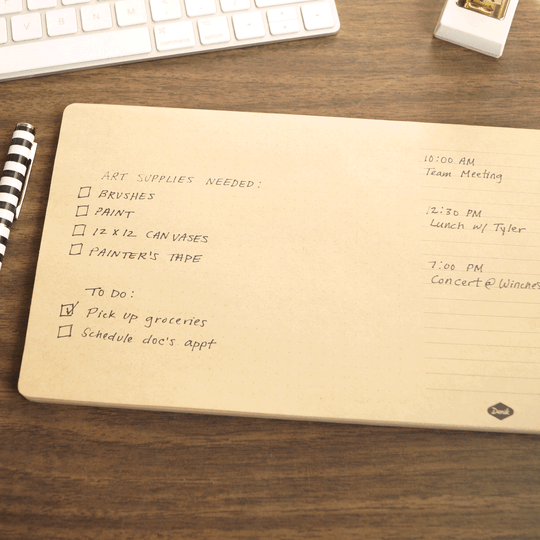 ART SUPPLIES NEEDED:
BRUSHES
PAINT
12 x 12 CANVASES
PAINTER'S TAPE
TO DO:
Pick up groceries
Schedule doc's appt
10:00 AM
Team Meeting
12:30 PM
Lunch w/ Tyler
7:00 PM
Concert @ Winches